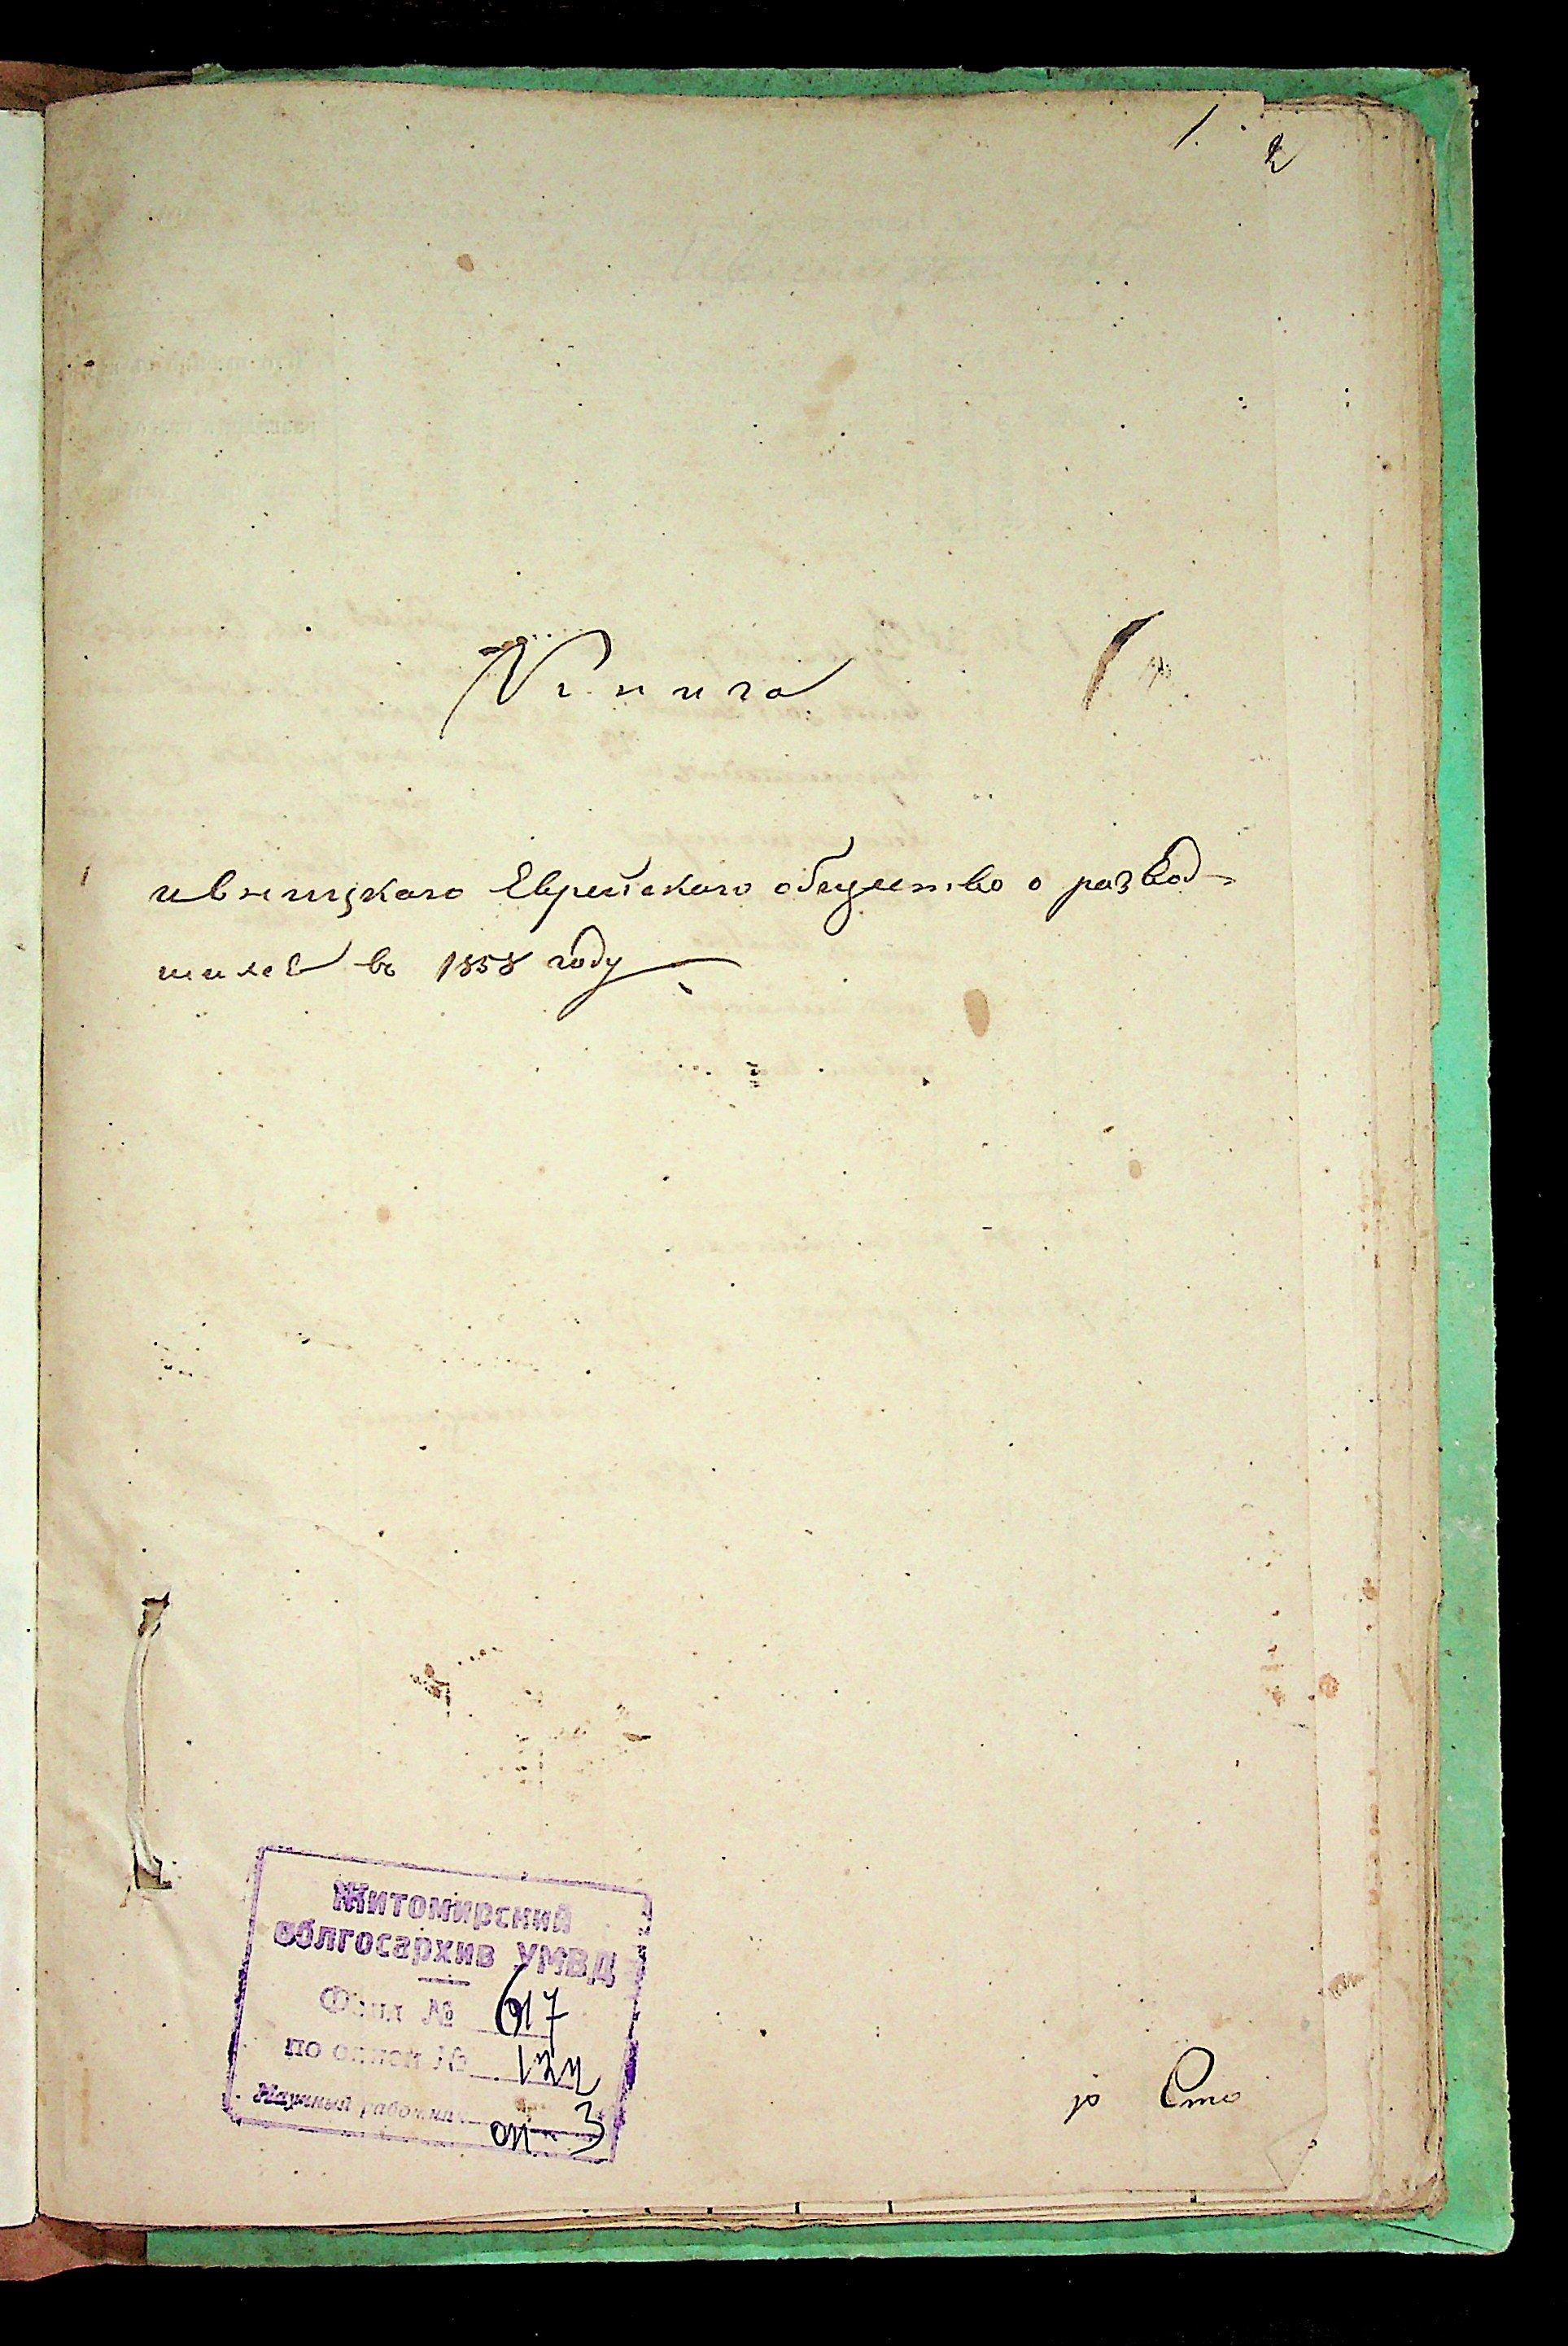 1. 2
Книга
ивницкаго Еврейскаго общество о развод-
шихся въ 1858 году
Житомирский
облгосархив УМВД
Фонд № 617
по описи № 122
Научный работник
оп 3